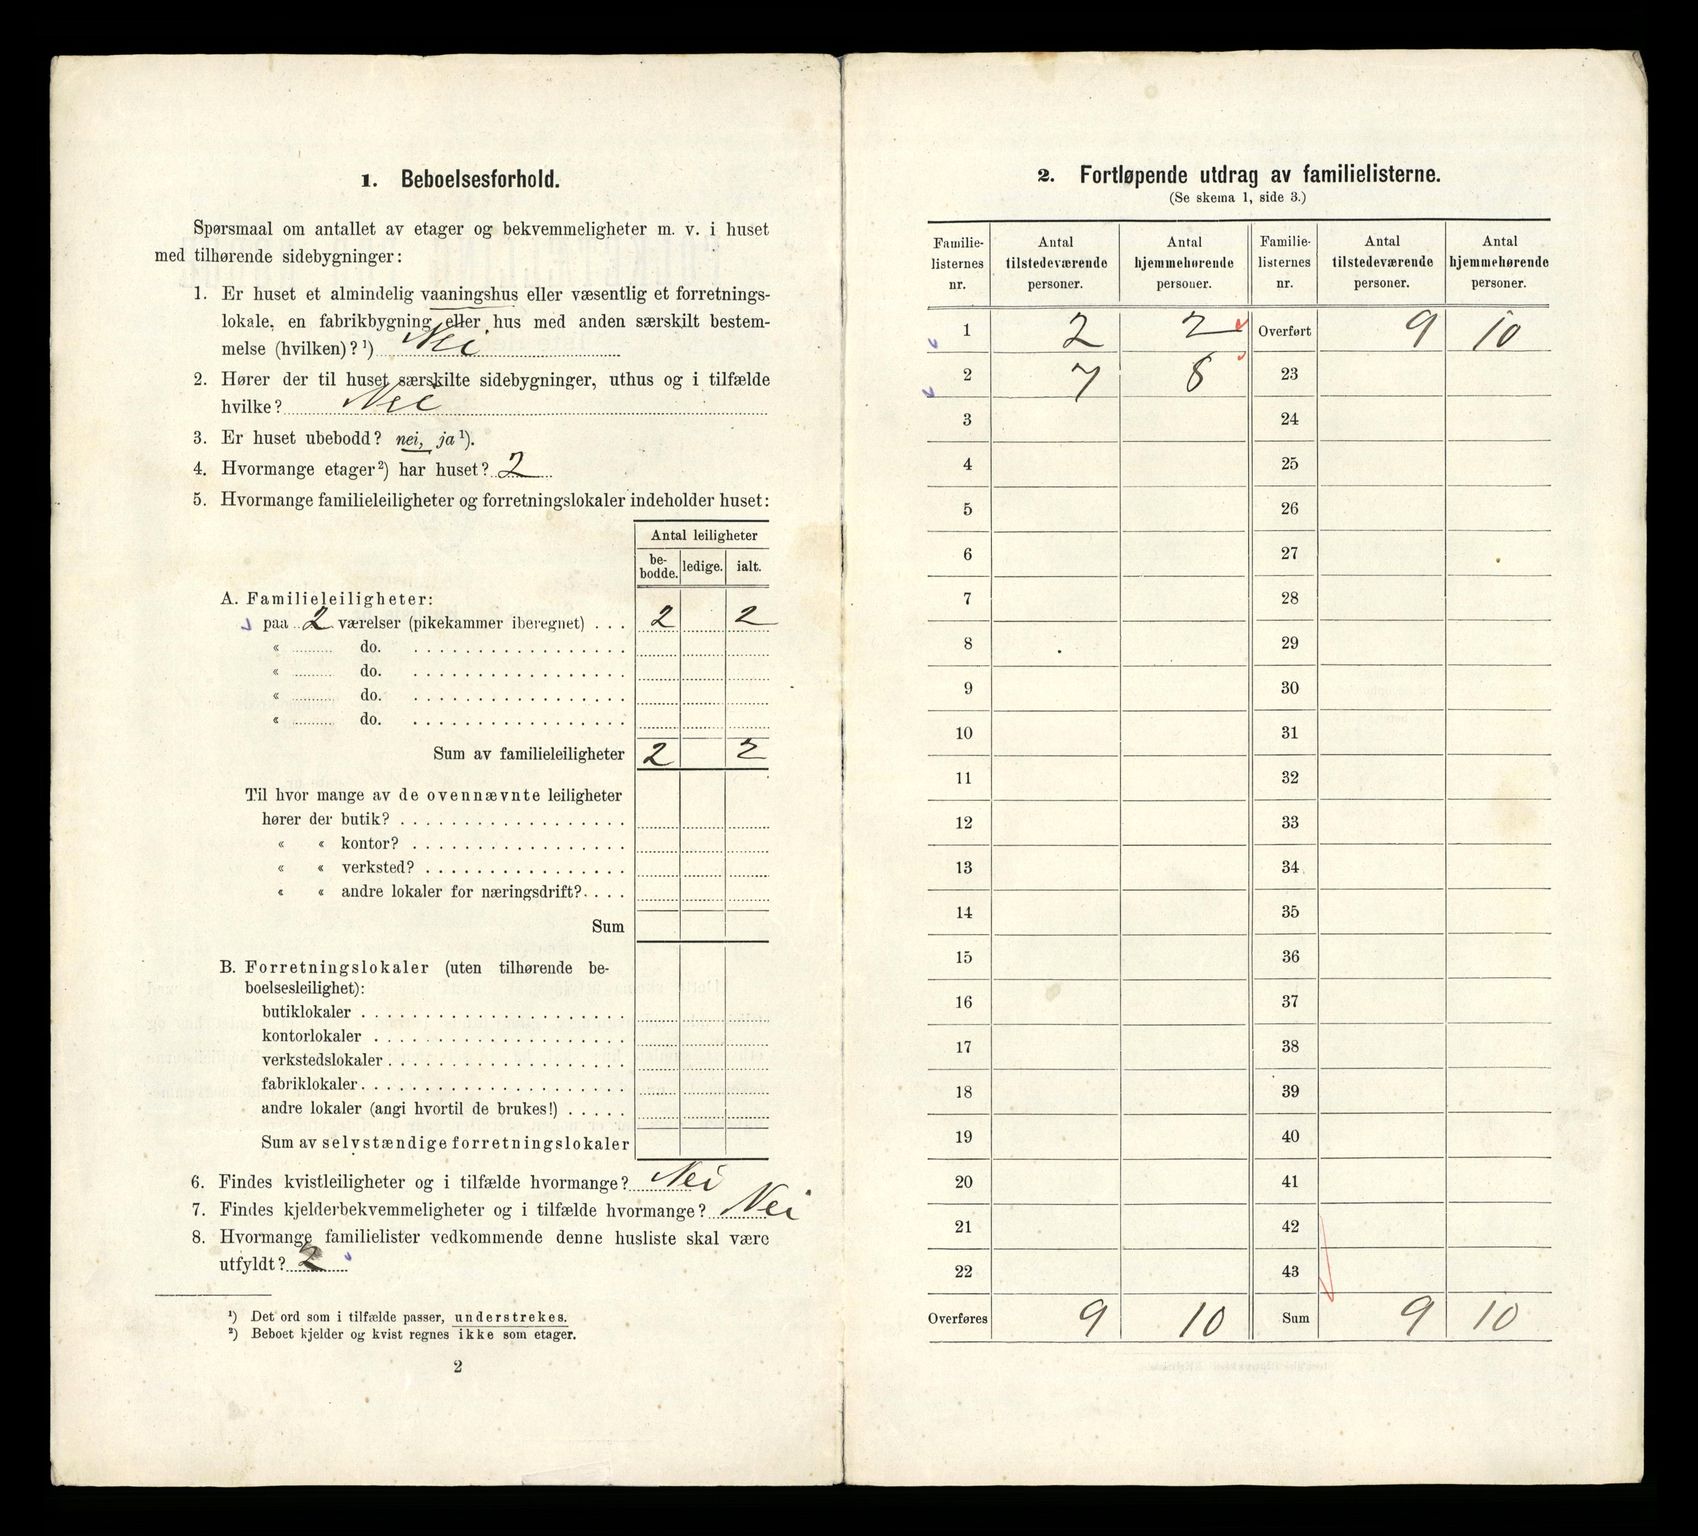 1. Beboelsesforhold.
Spørsmaal om antallet av etager og bekvemmeligheter m. v. i huset
med tilhørende sidebygninger:
1. Er huset et almindelig vaaningshus eller væsentlig et forretnings-
lokale, en fabrikbygning eller hus med anden særskilt bestem-
melse (hvilken)? ¹) Nei
2. Hører der til huset særskilte sidebygninger, uthus og i tilfælde
hvilke? Nei
3. Er huset ubebodd? nei, ja ¹).
4. Hvormange etager ²) har huset? 2
5. Hvormange familieleiligheter og forretningslokaler indeholder huset:
Antal leiligheter
be-
bodde. ledige. ialt.
A. Familieleiligheter:
paa 2 værelser (pikekammer iberegnet) . . . 2 2
« do.
« do.
« do.
« do.
Sum av familieleiligheter 2 2
Til hvor mange av de ovennævnte leiligheter
hører der butik?
« « kontor?
« « verksted?
« « andre lokaler for næringsdrift?
Sum
B. Forretningslokaler (uten tilhørende be-
boelsesleilighet):
butiklokaler
kontorlokaler
verkstedslokaler
fabriklokaler
andre lokaler (angi hvortil de brukes!)
Sum av selvstændige forretningslokaler
6. Findes kvistleiligheter og i tilfælde hvormange? Nei
7. Findes kjelderbekvemmeligheter og i tilfælde hvormange? Nei
8. Hvormange familielister vedkommende denne husliste skal være
utfyldt? 2
¹) Det ord som i tilfælde passer, understrekes.
²) Beboet kjelder og kvist regnes ikke som etager.
2
2. Fortløpende utdrag av familielisterne.
(Se skema 1, side 3.)
Familie- Antal Antal Familie- Antal Antal
listernes tilstedeværende hjemmehørende listernes tilstedeværende hjemmehørende
nr. personer. personer. nr. personer. personer.
1 2 2 Overført 9 10
2 7 8 23
3 24
4 25
5 26
6 27
7 28
8 29
9 30
10 31
11 32
12 33
13 34
14 35
15 36
16 37
17 38
18 39
19 40
20 41
21 42
22 43
Overføres 9 10 Sum 9 10